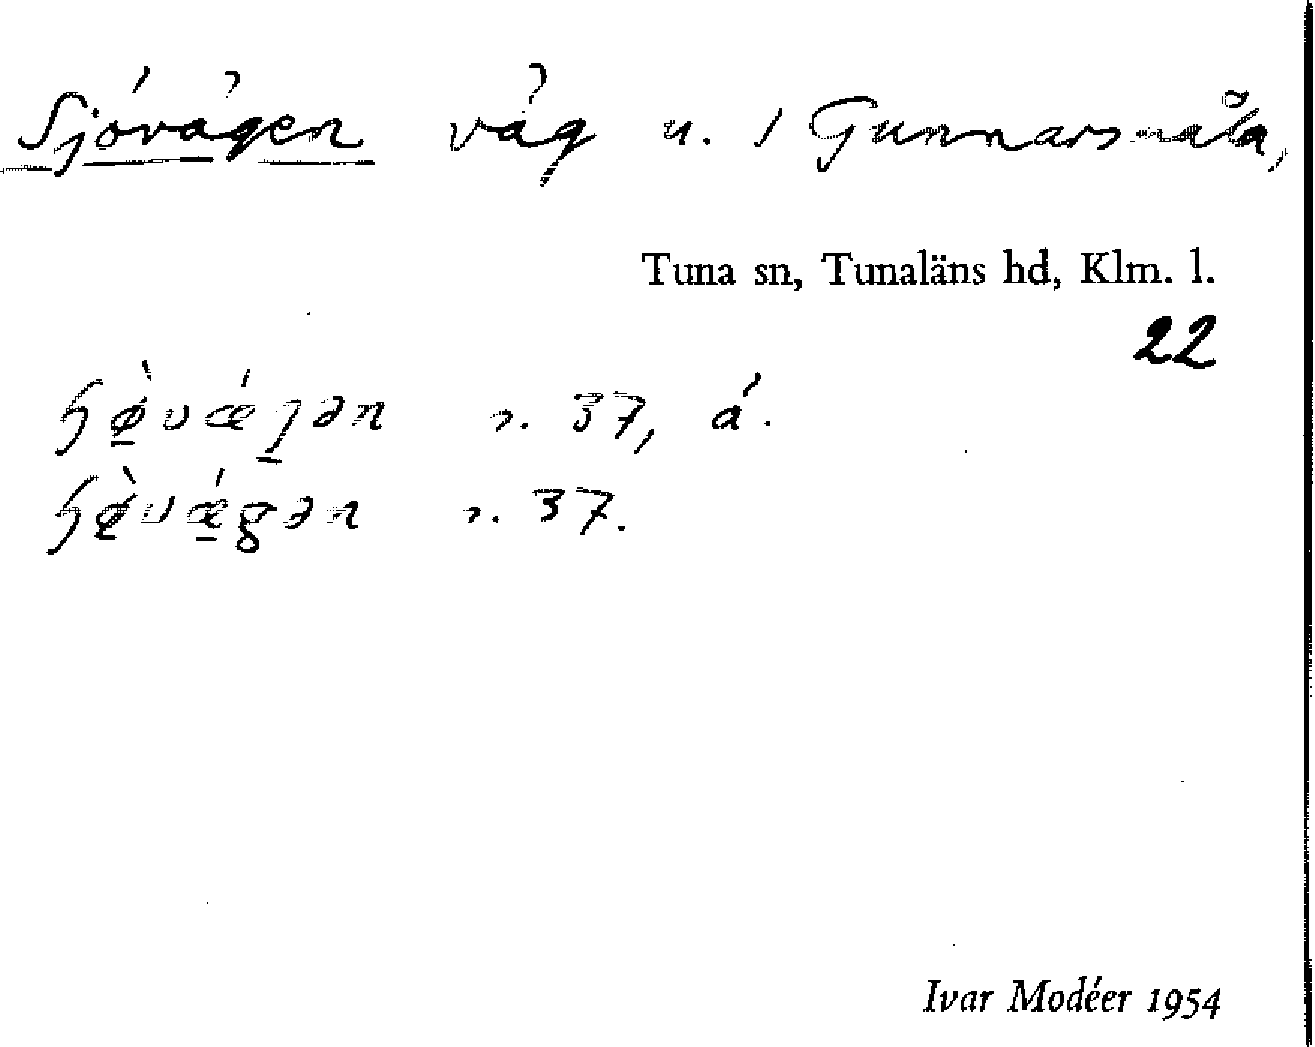 Sjövägen väg n. 1 Gunnarsmåla,
Tuna sn, Tunaläns hd, Klm. l.
22
r. 37, á.
r. 37.
Ivar Modéer 1954